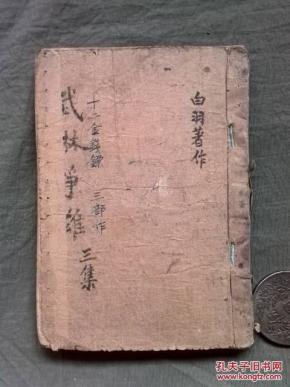 白羽著作
十二金錢鏢 三部作
武林爭雄 三集
孔夫子旧书网